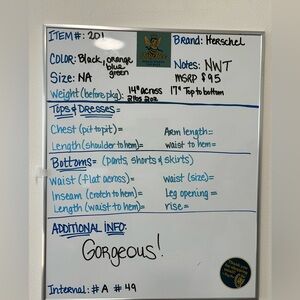 ITEM#: 201
Brand: Herschel
COLOR: Black, orange
blue
green
Notes: NWT
MSRP $95
Size: NA
14" across
17" Top to bottom
Weight (before pkg): 2 lbs 2oz
Tops & Dresses=
Chest (pit to pit)=
Arm length=
Length (shoulder to hem)=
waist to hem=
Bottoms= (pants, shorts & skirts)
Waist (flat across)=
waist (size)=
Inseam (crotch to hem)=
Leg opening=
Length (waist to hem)=
rise=
ADDITIONAL INFO:
Gorgeous!
Internal: # A # 49